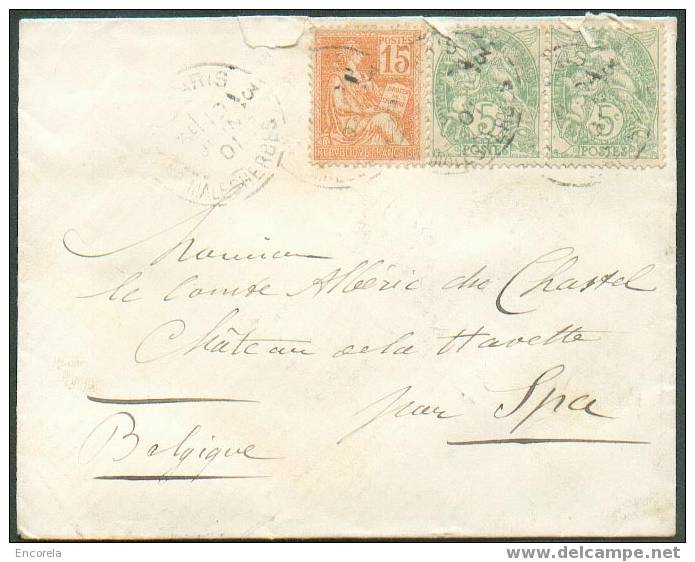 15
POSTES
5c
POSTES
5c
POSTES
PARIS
3
01
MALESHERBES
Monsieur
le Comte Albéric du Chastel
Château de la Havette
par Spa
Belgique
Encorela
www.delcampe.net